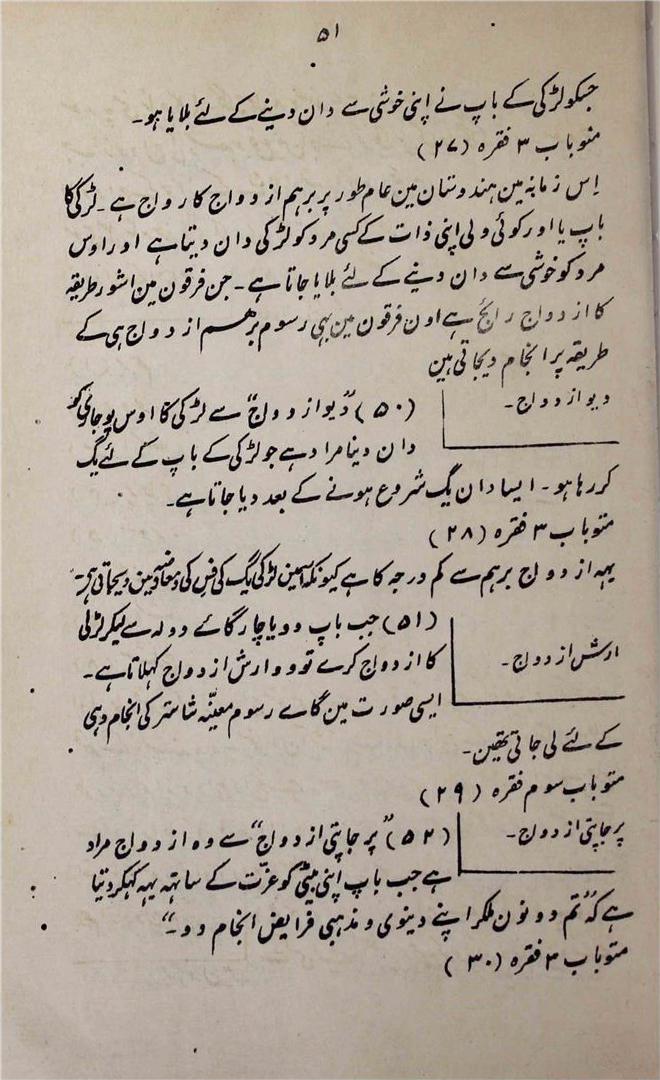 ۵۱
جسکو لڑکی کے باپ نے اپنی خوشی سے دان دینے کے لئے بلایا ہو۔
منو باب ۳ فقرہ (۲۷)
اِس زمانہ مین ہندوستان مین عام طور پر برہم ازدواج کا رواج ہے۔ لڑکی کا
باپ یا اور کوئی ولی اپنی ذات کے کسی مرد کو لڑکی دان دیتا ہے اور اوس
مرد کو خوشی سے دان دینے کے لئے بلایا جاتا ہے۔ جن فرقون مین اشور طریقہ
کا ازدواج رائج ہے اون فرقون مین بھی رسوم برہم ازدواج ہی کے
طریقہ پر انجام دیجاتی ہین
دیو ازدواج۔
(۵۰) "دیو ازدواج" سے لڑکی کا اوس پوجاری کو
دان دینا مراد ہے جو لڑکی کے باپ کے لئے یگ
کر رہا ہو۔ ایسا دان یگ شروع ہونے کے بعد دیا جاتا ہے۔
منو باب ۳ فقرہ (۲۸)
یہہ ازدواج برہم سے کم درجہ کا ہے کیونکہ اسمین لڑکی یگ کی فیس کی معاوضہ مین دیجاتی ہے۔
ارش ازدواج۔
(۵۱) جب باپ دو یا چار گائے دولہ سے لیکر لڑکی
کا ازدواج کرے تو وہ ارش ازدواج کہلاتا ہے۔
ایسی صورت مین گاے رسوم معینّہ شاستر کی انجام دہی
کے لئے لی جاتی تھین۔
منو باب سوم فقرہ (۲۹)
پرجاپتی ازدواج۔
(۵۲) "پرجاپتی ازدواج" سے وہ ازدواج مراد
ہے جب باپ اپنی بیٹی کو عزّت کے ساتہہ یہہ کہکر دیتا
ہے کہ "تم دونون ملکر اپنے دینوی و مذہبی فرایض انجام دو۔"
منو باب ۳ فقرہ (۳۰)